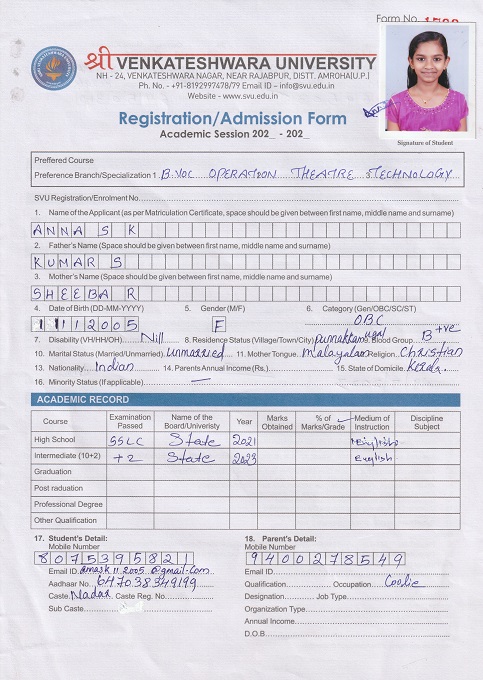 Form No.
श्री VENKATESHWARA UNIVERSITY
NH - 24, VENKATESHWARA NAGAR, NEAR RAJABPUR, DISTT. AMROHA(U.P.)
Ph. No. - +91-8192997478/79 Email ID - info@svu.edu.in
Website - www.svu.edu.in
Registration/Admission Form
Academic Session 202_ - 202_
Signature of Student
Preffered Course
Preference Branch/Specialization 1. B.VOC OPERATION THEATRE TECHNOLOGY
SVU Registration/Enrolment No.
1. Name of the Applicant (as per Matriculation Certificate, space should be given between first name, middle name and surname)
ANNA S K
2. Father's Name (Space should be given between first name, middle name and surname)
KUMAR S
3. Mother's Name (Space should be given between first name, middle name and surname)
SHEEBA R
4. Date of Birth (DD-MM-YYYY) 5. Gender (M/F) 6. Category (Gen/OBC/SC/ST)
11112005 F OBC
7. Disability (VH/HH/OH) Nill 8. Residence Status (Village/Town/City) 9. Blood Group B +ve
10. Marital Status (Married/Unmarried) unmarried 11. Mother Tongue malayalam Religion Christian
13. Nationality Indian 14. Parents Annual Income (Rs.) 15. State of Domicile Kerala
16. Minority Status (If applicable) —
ACADEMIC RECORD
Course Examination Passed Name of the Board/Univeristy Year Marks Obtained % of Marks/Grade Medium of Instruction Discipline Subject
High School SSLC State 2021 English
Intermediate (10+2) +2 State 2023 English
Graduation
Post raduation
Professional Degree
Other Qualification
17. Student's Detail: 18. Parent's Detail:
Mobile Number Mobile Number
8075395821 9400278549
Email ID Email ID
Aadhaar No. 647038349199 Qualification Occupation Coolie
Caste Nadar Caste Reg. No. Designation Job Type
Sub Caste Organization Type
Annual Income
D.O.B.